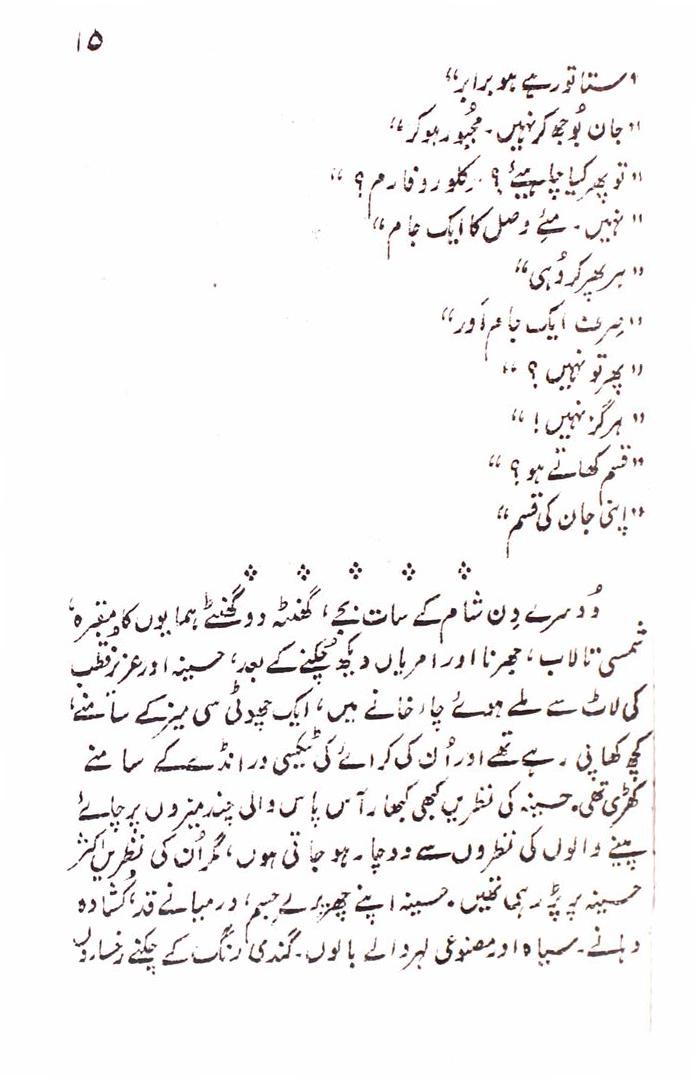 ۱۵
"ستا تو رہے ہو برابر"
"جان بُوجھ کر نہیں۔ مجبُور ہو کر"
"تو پھر کیا چاہیئے؟ ۔ کلوروفارم؟"
"نہیں۔ مئے وصل کا ایک جام"
"ہر پھر کر وُہی"
"صرف ایک جام اَور"
"پھر تو نہیں؟"
"ہرگز نہیں!"
"قسم کھاتے ہو؟"
"اپنی جان کی قسم"
دُوسرے دِن شام کے سات بجے، گھنٹہ دو گھنٹے ہمایوں کا مقبرہ،
شمسی تالاب، جھرنا اور امریاں دیکھ چکنے کے بعد، حسینہ اور عزیز قطب
کی لاٹ سے ملے ہوئے چار خانے میں، ایک چھوٹی سی میز کے سامنے،
کچھ کھا پی رہے تھے اور اُن کی کرائے کی ٹیکسی ورانڈے کے سامنے
کھڑی تھی۔ حسینہ کی نظریں کبھی کبھار آس پاس والی چند میزوں پر چائے
پینے والوں کی نظروں سے دوچار ہو جاتی ہوں، مگر اُن کی نظریں اکثر
حسینہ پر پڑ رہی تھیں۔ حسینہ اپنے چھریرے جسم، درمیانے قد، کُشادہ
دہانے۔ سیاہ اور مصنوعی لہر والے بالوں۔ گندمی رنگ کے چکنے رخساروں